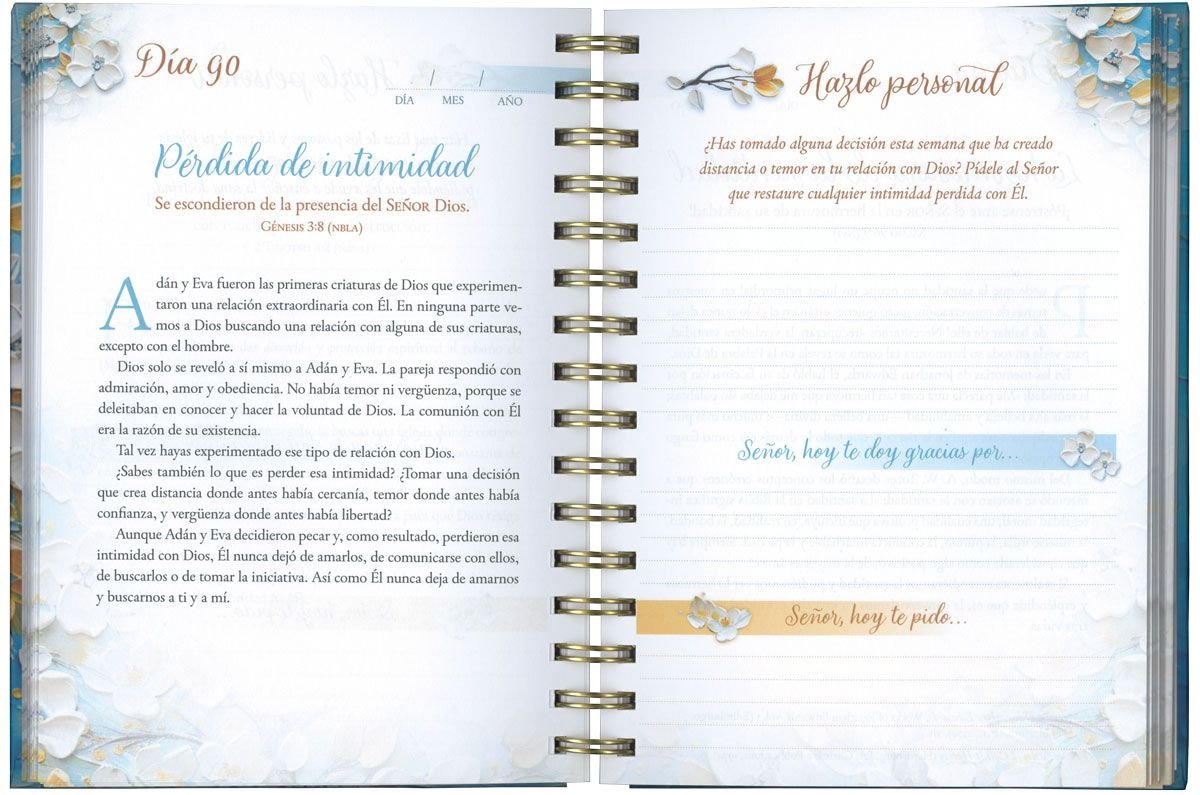 Día 90
/ /
DÍA MES AÑO
Pérdida de intimidad
Se escondieron de la presencia del SEÑOR Dios.
GÉNESIS 3:8 (NBLA)
Adán y Eva fueron las primeras criaturas de Dios que experimen-
taron una relación extraordinaria con Él. En ninguna parte ve-
mos a Dios buscando una relación con alguna de sus criaturas,
excepto con el hombre.
Dios solo se reveló a sí mismo a Adán y Eva. La pareja respondió con
admiración, amor y obediencia. No había temor ni vergüenza, porque se
deleitaban en conocer y hacer la voluntad de Dios. La comunión con Él
era la razón de su existencia.
Tal vez hayas experimentado ese tipo de relación con Dios.
¿Sabes también lo que es perder esa intimidad? ¿Tomar una decisión
que crea distancia donde antes había cercanía, temor donde antes había
confianza, y vergüenza donde antes había libertad?
Aunque Adán y Eva decidieron pecar y, como resultado, perdieron esa
intimidad con Dios, Él nunca dejó de amarlos, de comunicarse con ellos,
de buscarlos o de tomar la iniciativa. Así como Él nunca deja de amarnos
y buscarnos a ti y a mí.
Hazlo personal
¿Has tomado alguna decisión esta semana que ha creado
distancia o temor en tu relación con Dios? Pídele al Señor
que restaure cualquier intimidad perdida con Él.
Señor, hoy te doy gracias por...
Señor, hoy te pido...